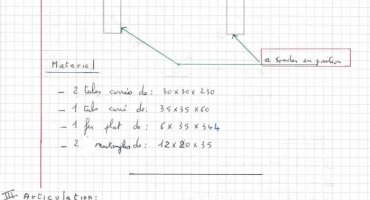 a souder en position
Materiel
- 2 tubes carrés de: 30x30x230
- 1 tube carré de: 35x35x60
- 1 fer plat de: 6x35x344
- 2 rectangles de: 12x20x35
III Articulation: